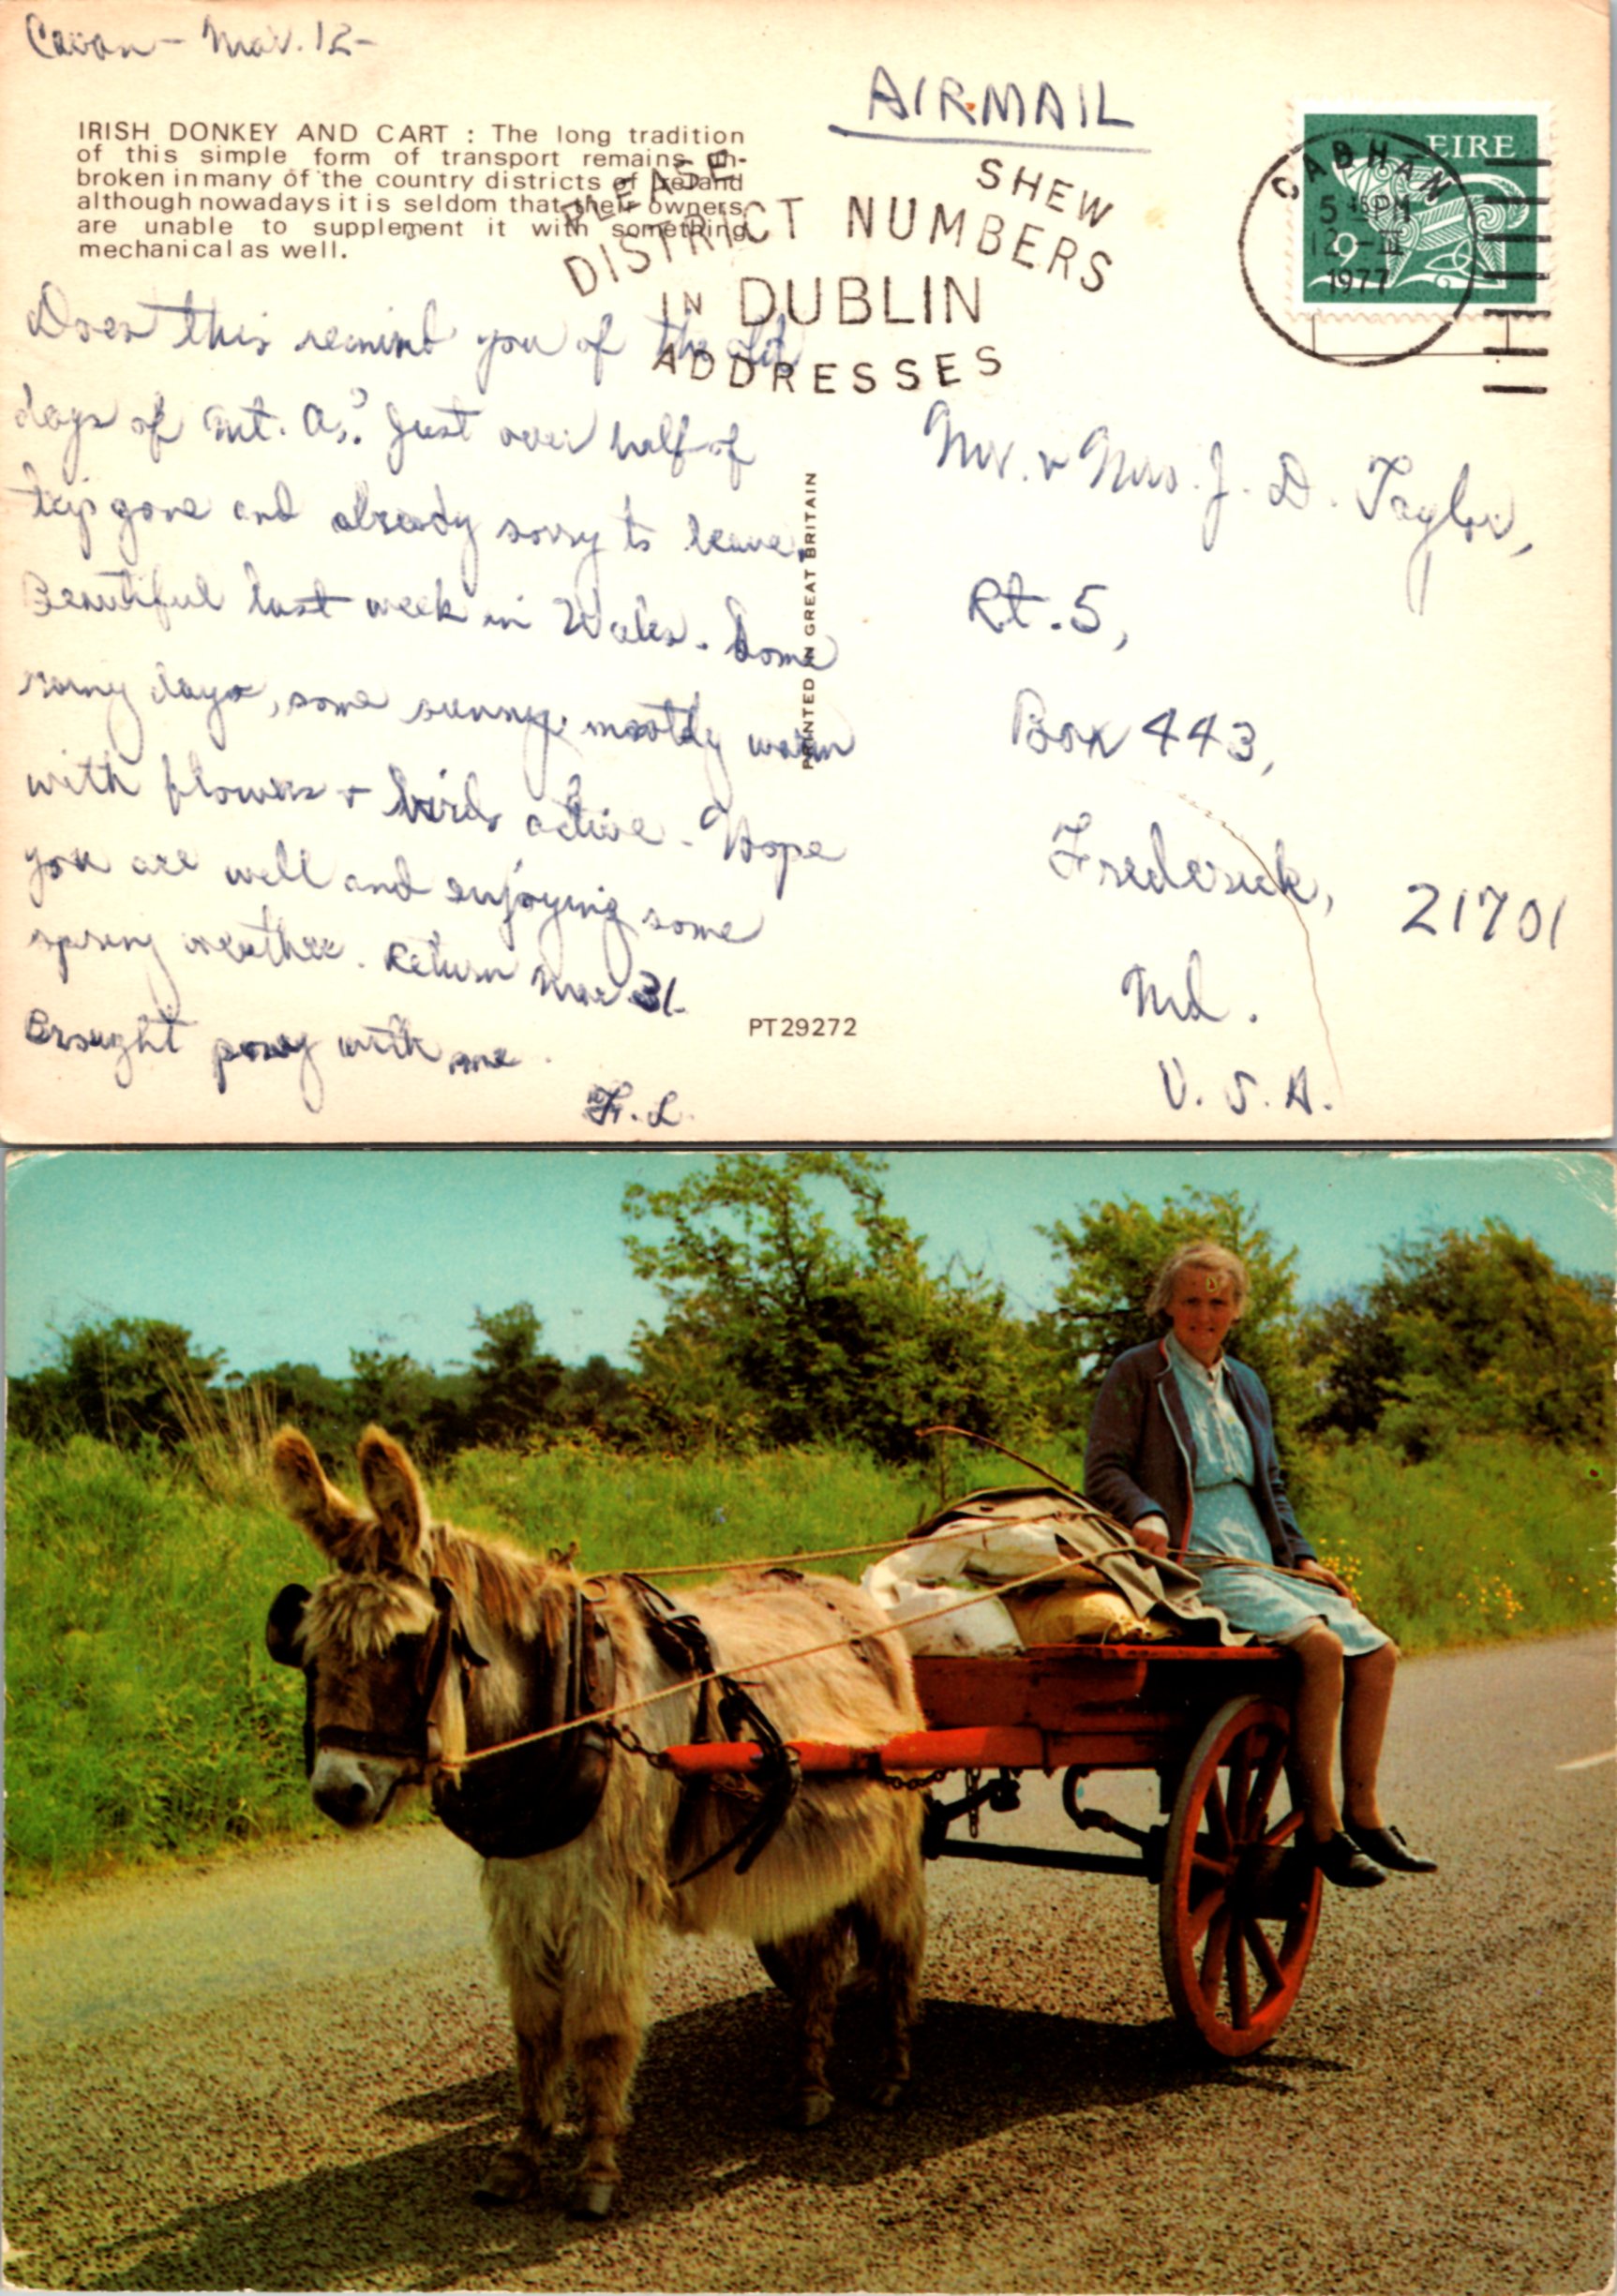 Cavan - Mar. 12 -
IRISH DONKEY AND CART : The long tradition
of this simple form of transport remains un-
broken in many of the country districts of Ireland
although nowadays it is seldom that their owners
are unable to supplement it with something
mechanical as well.
AIRMAIL
PLEASE SHEW
DISTRICT NUMBERS
IN DUBLIN
ADDRESSES
EIRE
9
CABHAN
5 PM
12 - III
1977
Does this remind you of the old
days of Mt. A.? Just over half of
trip gone and already sorry to leave.
Beautiful last week in Wales. Some
rainy days, some sunny, mostly warm
with flowers + birds active - Hope
you are well and enjoying some
spring weather. Return Mar 31.
Brought pony with me.
Fr. L.
PRINTED IN GREAT BRITAIN
PT29272
Mr. + Mrs. J. D. Taylor,
Rt. 5,
Box 443,
Frederick, 21701
Md.
U. S. A.